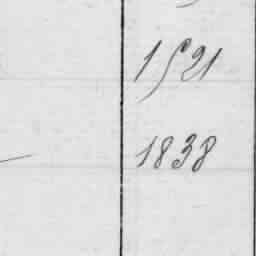 1521
1838